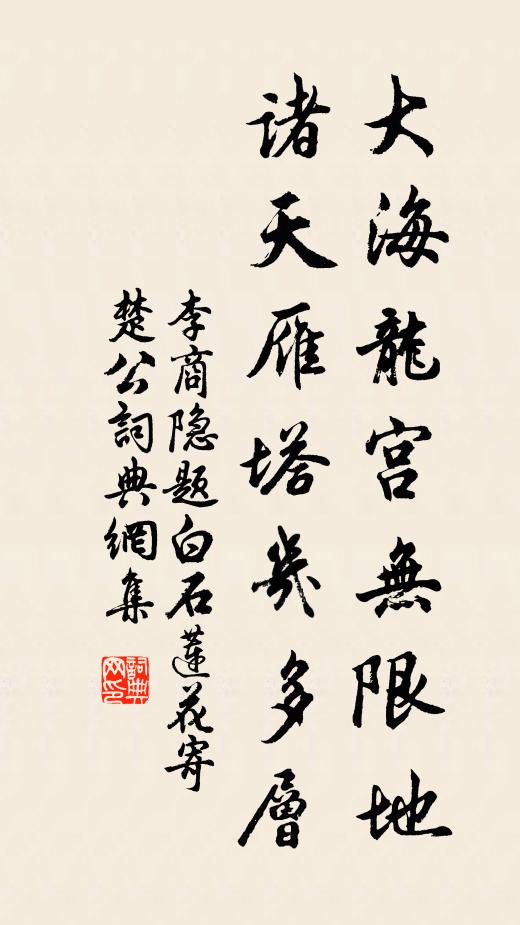 大海龍宮無限地
诸天雁塔幾多層
李商隐題白石蓮花寄
楚公詞典網集
詞典网印